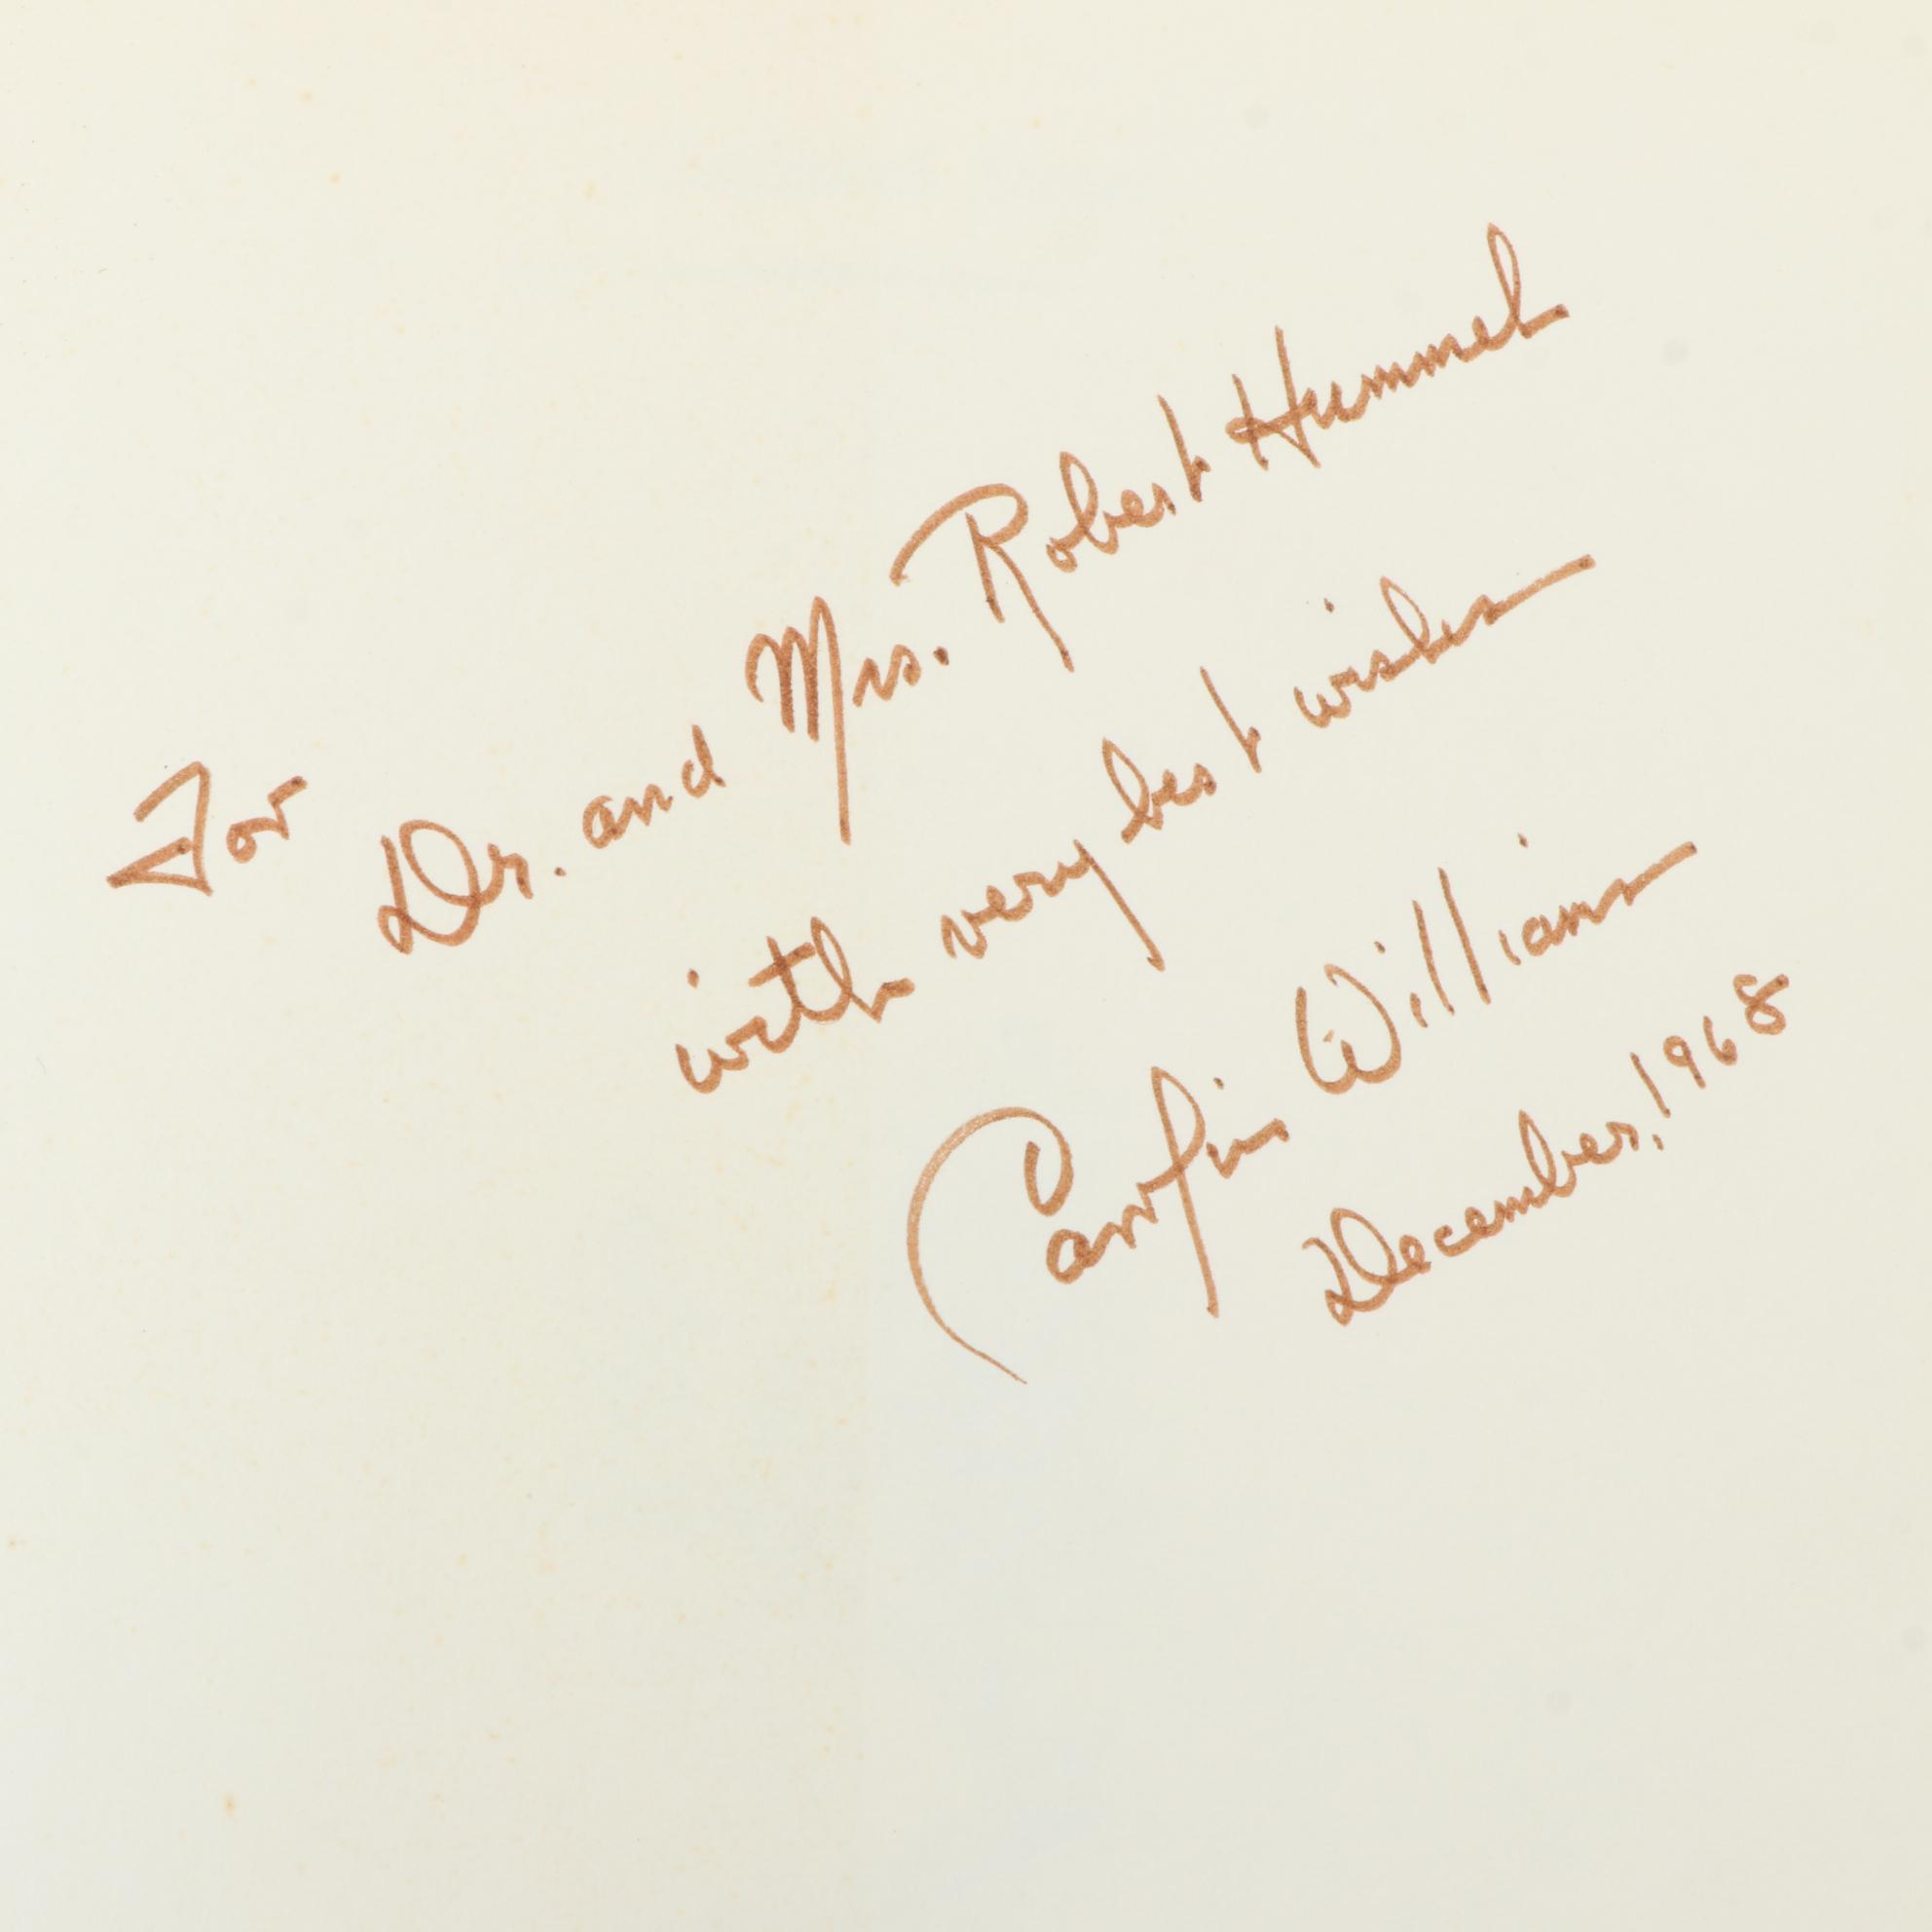 For
Dr. and Mrs. Robert Hummel
with very best wishes
Williams
December, 1968